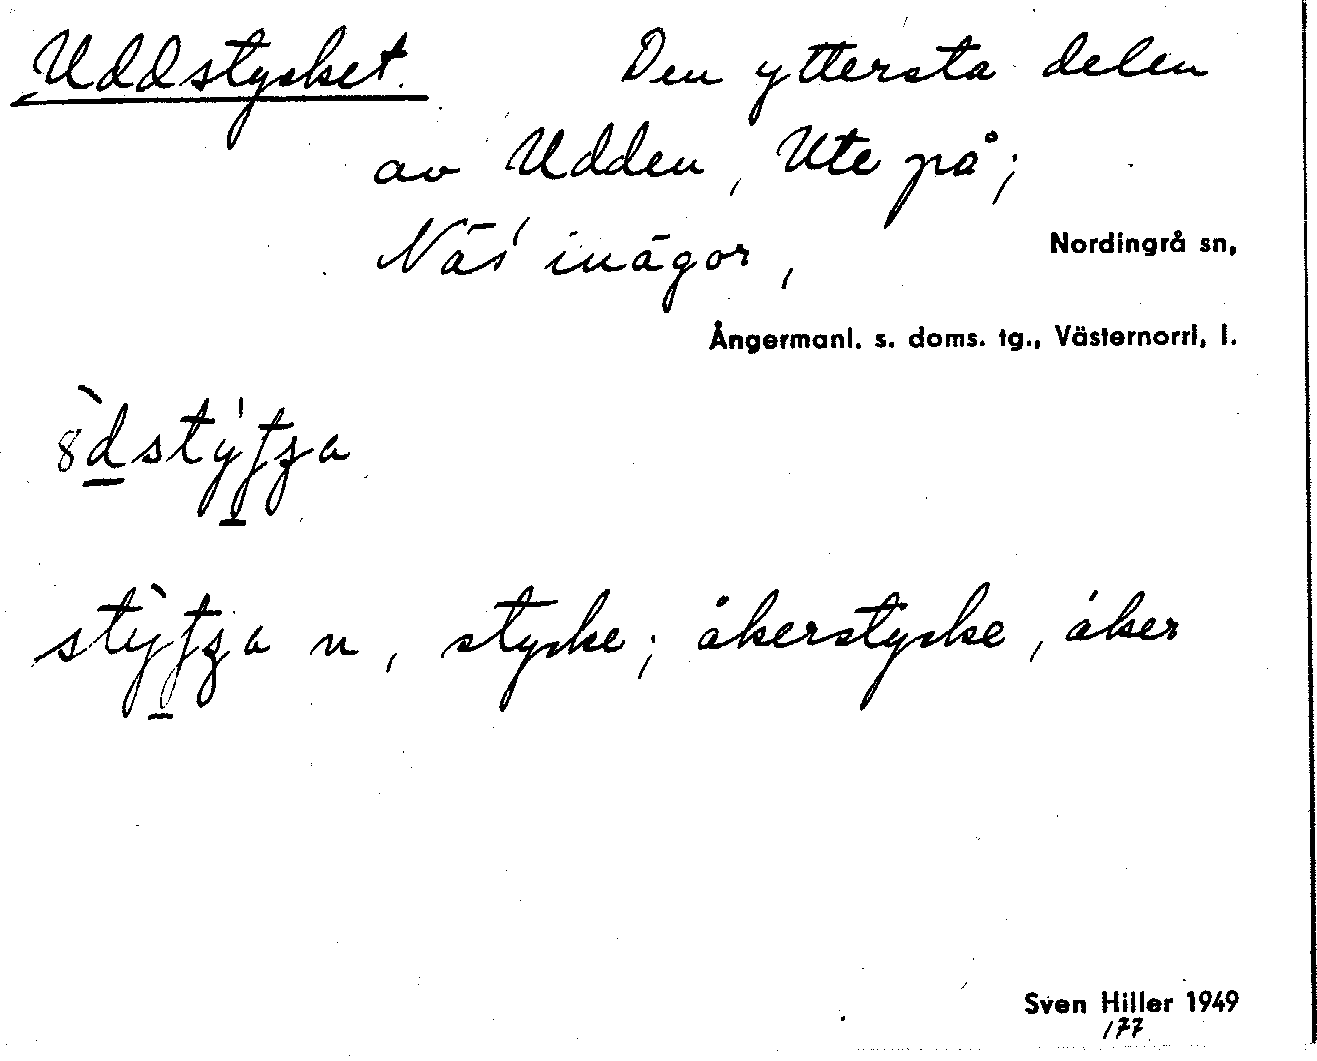 Uddstycket. Den yttersta delen
av Udden, Ute på;
Näs' inägor,
Nordingrå sn,
Ångermanl. s. doms. tg., Västernorrl, l.
n, stycke; åkerstycke, åker
Sven Hiller 1949
177